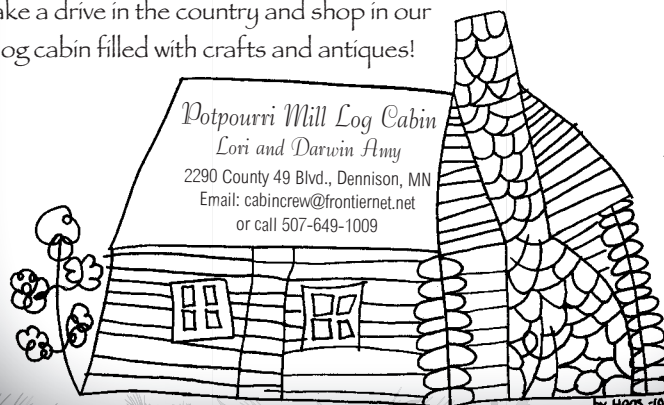 ake a drive in the country and shop in our
og cabin filled with crafts and antiques!
Potpourri Mill Log Cabin
Lori and Darwin Amy
2290 County 49 Blvd., Dennison, MN
Email: cabincrew@frontiernet.net
or call 507-649-1009
by